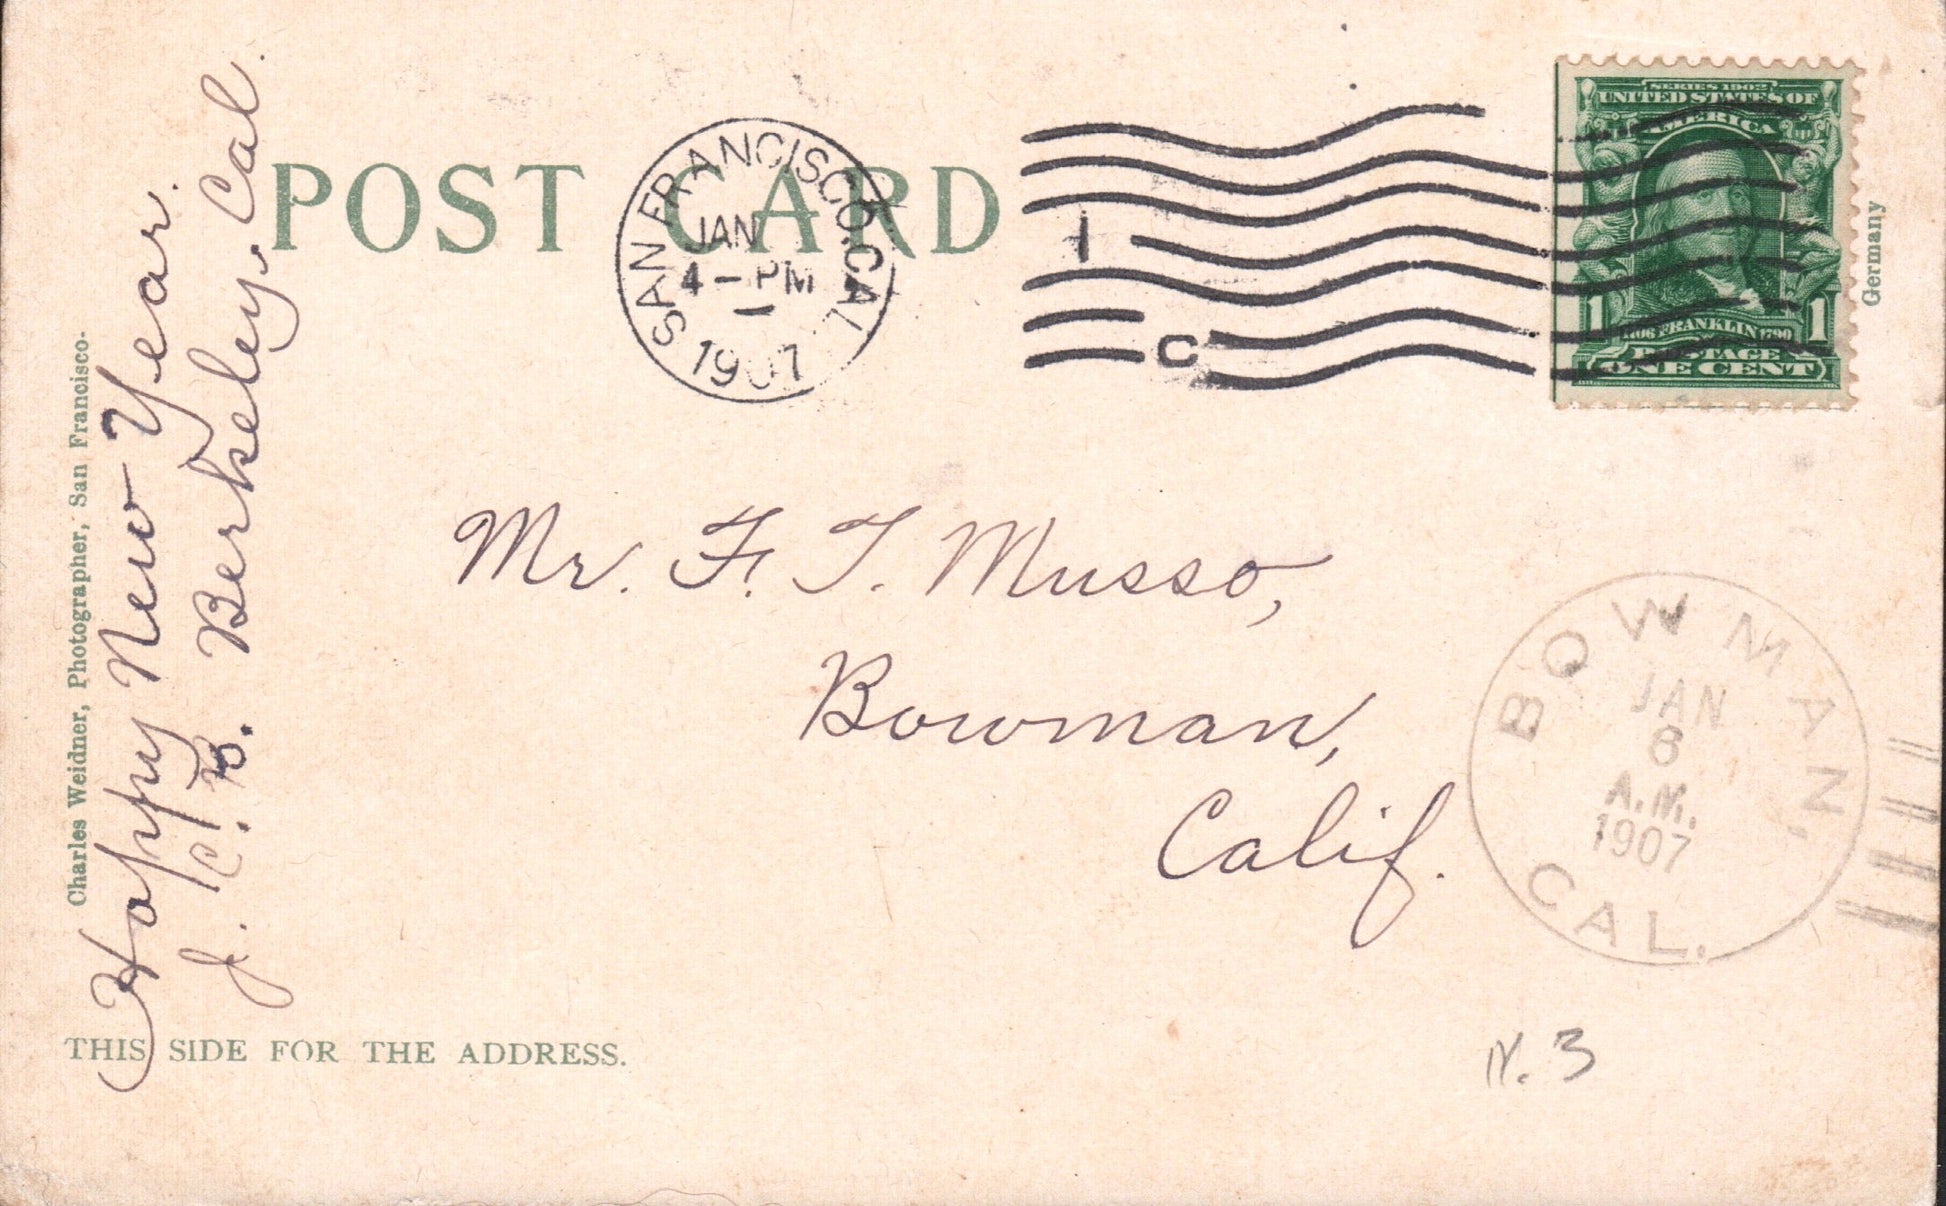 POST CARD
SAN FRANCISCO, CAL
JAN
4 - PM
1907
1
C
SERIES 1902
UNITED STATES OF
AMERICA
1706 FRANKLIN 1790
1 1
POSTAGE
ONE CENT
Germany
Charles Weidner, Photographer, San Francisco-
Happy New Year.
J. C. B. Berkeley, Cal.
Mr. F. T. Musso,
Bowman,
Calif.
BOWMAN,
JAN
6
A.M.
1907
CAL.
THIS SIDE FOR THE ADDRESS.